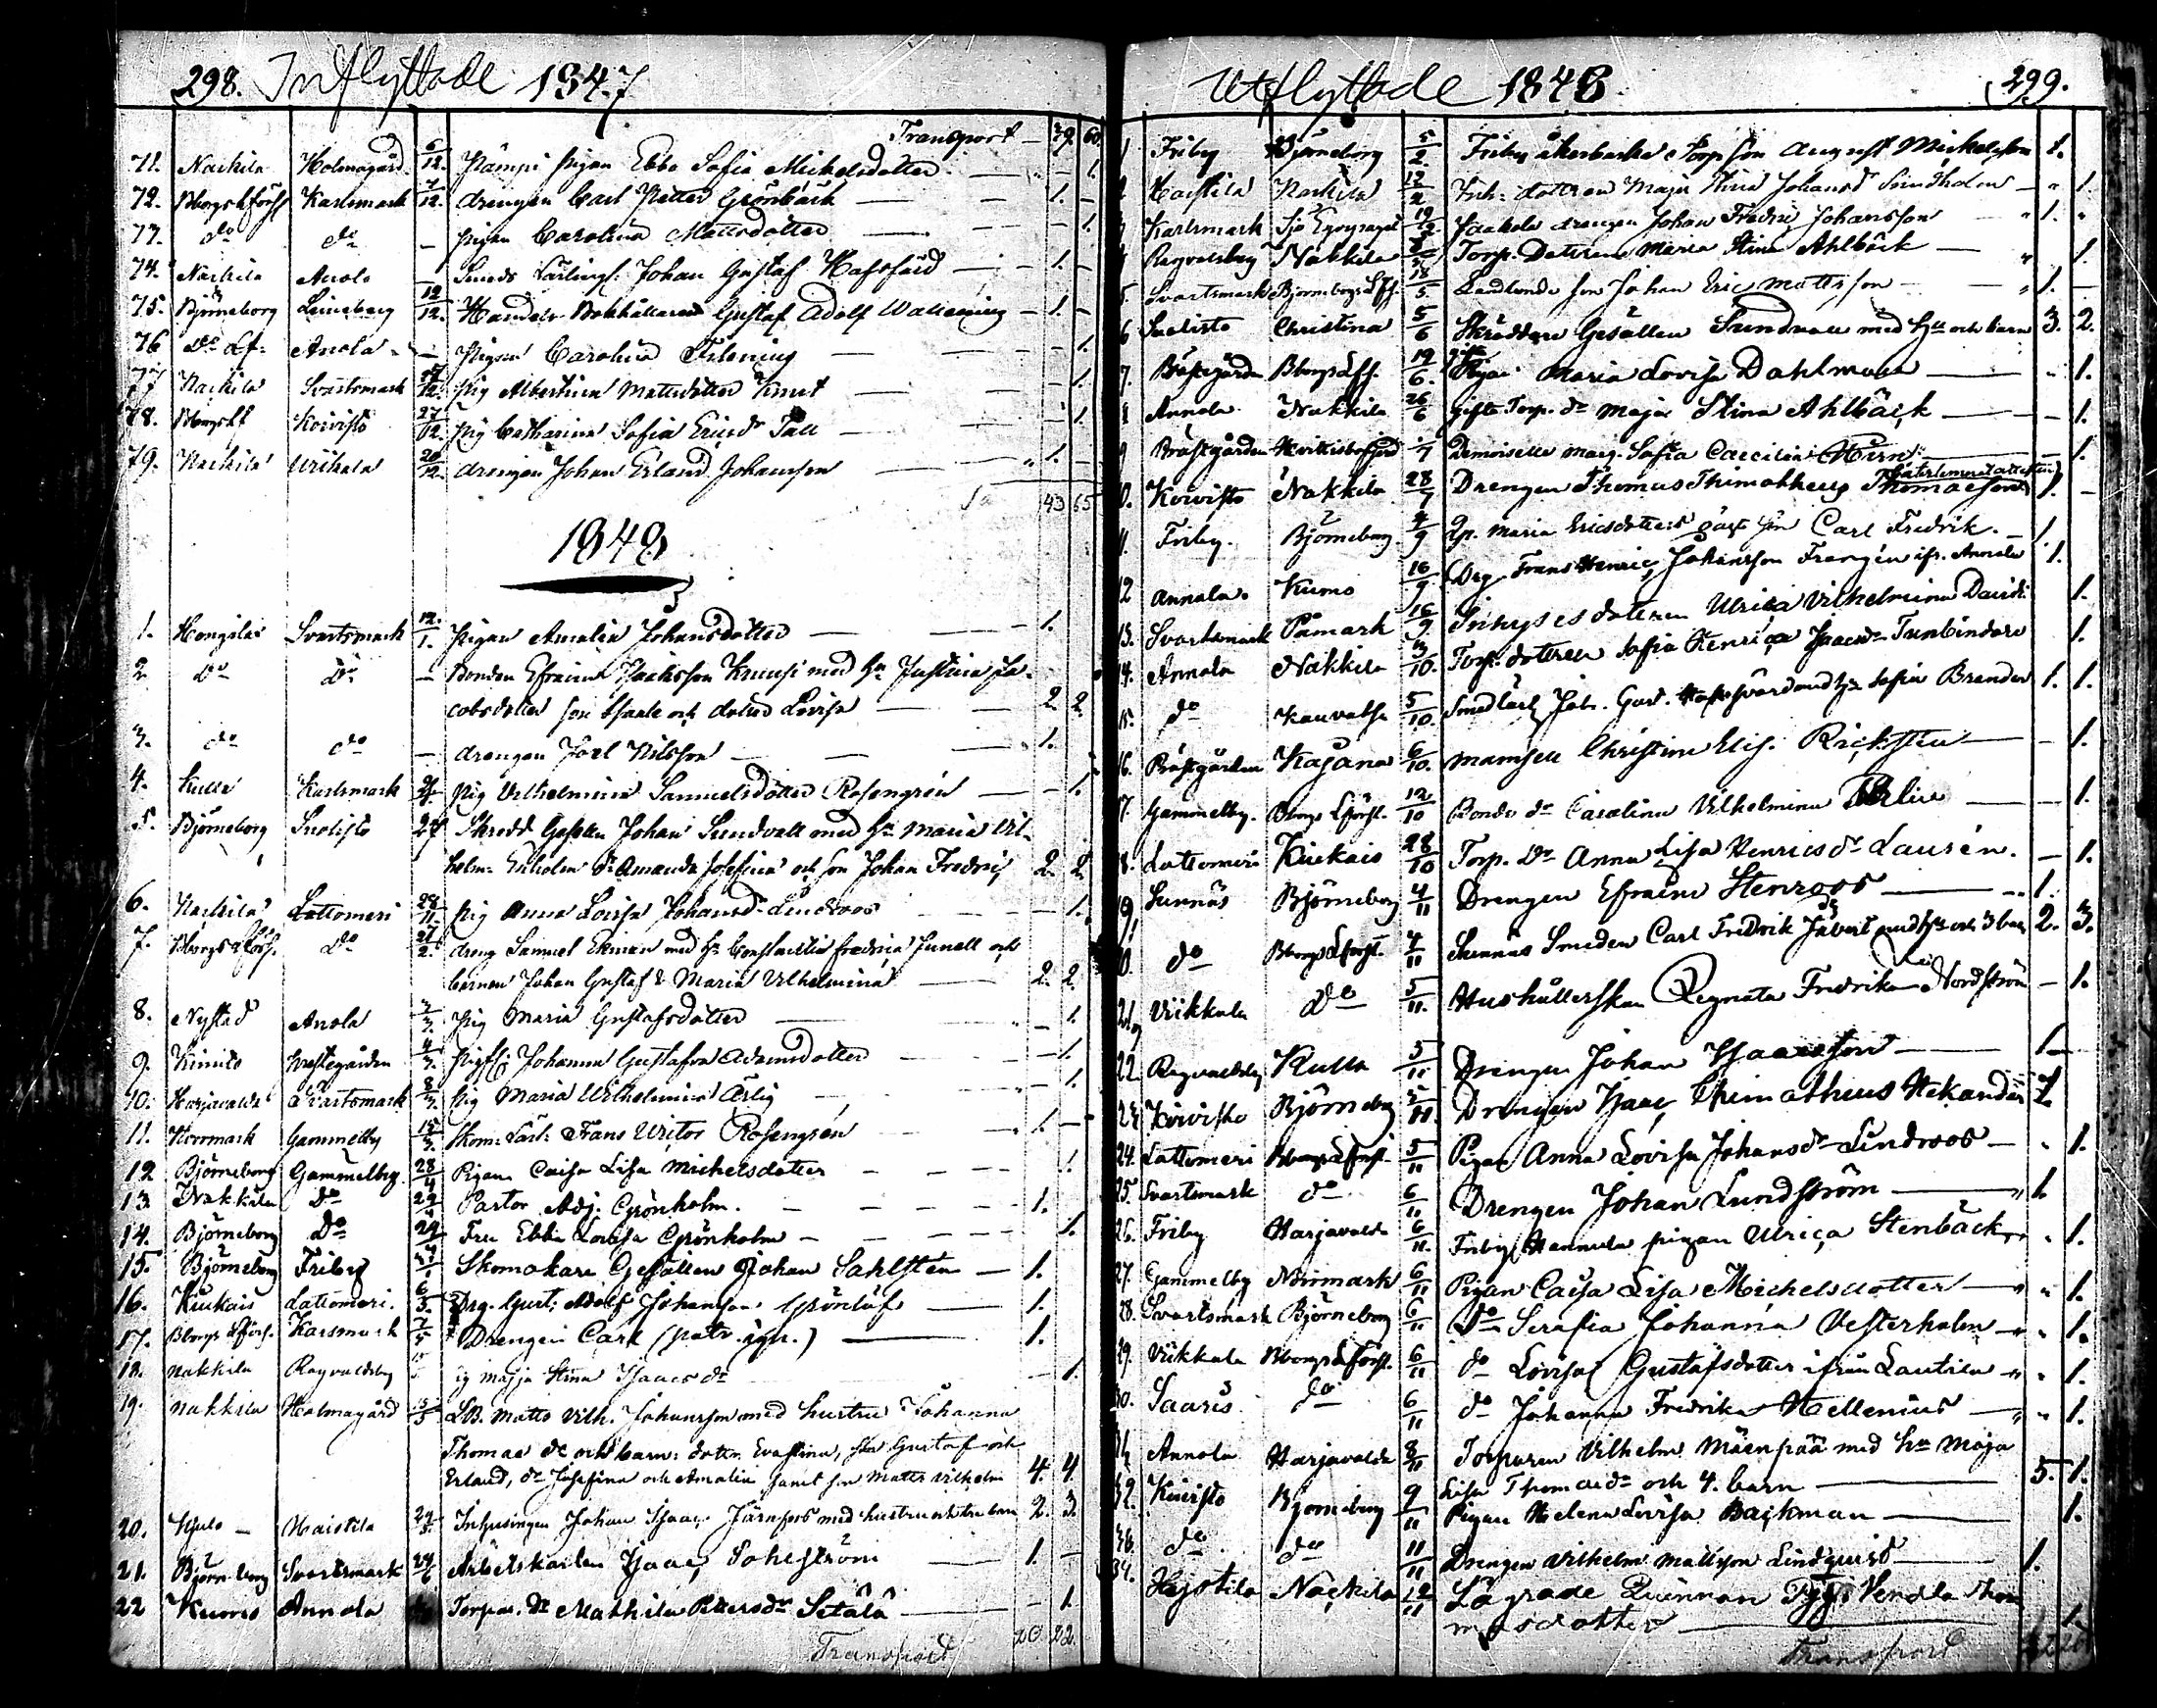 298. Inflyttade 1847
Transport 39. 60.
71. Nackila Holmagård 6/12. Hämpi pigan Ebba Sofia Michelsdotter 1.
72. Bborgs Lförs Karlsmark 7/12. drengen Carl Petter Grönbäck 1.
do do pigan Carolina Mattsdotter 1.
74. Nackila Anola Smeds Lärlingl: Johan Gustaf 1.
75. Björneborg Leineberg 12/12. Handels Bokhållaren Gustaf Adolf 1.
76 do Lf: Anola pigan Carolina 1.
77 Nackila Svartsmark pig Albertina Mattsdotter Knut 1.
78. Koivisto 27/12. pig Catharina Sofia Ericsdr Tall 1.
79. Nackila 20/12. drengen Johan Erland Johansson 1.
Sa 43 65
1848
1. Svartsmark 12/1. pigan Amalia Johansdotter 1.
2 do do Bonden Efraim Isaksson Knuusi med h. Justina Ja-
cobsdotter son Isaak och dotter Lovisa 2 2
3. do do drengen Joel Nilsson 1.
4. Kulla Karlsmark pig Vilhelmina Samuelsdotter Rosengrén 1.
5. Björneborg Skrodd Gesellen Johan Sundvall med h. Maria Vil-
helm: Enholm dr Amanda Josefina och son Johan Fredric 2. 2.
6. Nackila Lattomeri pig Anna Lovisa Johansdr Lindroos 1.
7. Bborgs Lförs. do 27/2. dreng Samuel Ekman med h. Constantia Fredrica Junell och
barnen Johan Gustaf & Maria Vilhelmina 2. 2.
8. Nystad Anola pig Maria Gustafsdotter 1.
9. Kimito Prestegården Johanna Gustafva Adamsdotter 1.
10. Harjavalda Svartsmark 8/3. pig Maria Wilhelmina Ärlig 1.
11. Norrmark Gammelby Skom: Lärl: Frans Victor Rosengrén 1.
12 Björneborg Gammelby. 28/4 Pigan Caisa Lisa Michelsdotter 1.
13. Nakkila do 29 Pastor Adj. Grönholm. 1.
14. Björneborg do 29 Fru Ebba Lovisa Grönholm 1.
15. Björneborg Friby Skomakare Gesällen Johan Sahlsten 1.
16. Kiukais Lattomeri. 6/5. Drg. Gust: Adolf Johansson Grönlöf 1.
17. Bborgs Lförs. Karsmark 7/5 Drengen Carl (patr. ign.) 1.
18. Nakkila Ragvaldsby ig Majja Stina Isaacs dr 1.
19. Nakkila Holmagård 15/5 LB. Matts Vilh. Johansson med hustru Johanna
Thomae dr och barn: dottr. Evastina, son Gustaf och
Erland, dr Josefina och Amalia samt son Matts Vilhelm 4. 4.
20. Haistila Inhysingen Johan Isaacs. Järnfors med hustru och tre barn 2. 3.
21. Björneborg Svartsmark 24/6 Arbetskarlen Isaac 1.
22 Kumo Annola Torpar. dr Mathilda Pettersdr Setälä 1.
Transport 20 22.
Utflyttade 1848 299.
1 Friby Björneborg 5/2. Friby åkerbacka Torp son August Michelsson 1.
Haistila Nackila 12/2 Inh: dottren Maja Stina Johansd Lindholm 1.
Karlsmark 19/2 drengen Johan Fredric Johansson 1.
Ragvalsby Nakkila Torp. Dottren Maria Stina Ahlbäck 1.
5. Svartsmark Björneborgs Lfs. 18/5. Landbonde son Johan Eric Mattsson 1.
6 Christina 5/6 Skräddare Gesällen Sundvall med hu och barn 3. 2.
7. Prästgården Bborgs Lfs. 19/6. Pigan Maria Lovisa Dahlman 1.
8 Annola Nakkila 26/6 Gifta Torp. dr Maja Stina Ahlbäck 1.
9 Prästgården Demoiselle Marg. Sofia Caecilia 1.
10. Koivisto Nakkila 28/7 Drengen Thomas Thimotheus Thomaeson 1.
11. Friby. Björneborg 4/9 Pp. Maria Ericsdotters oäkt son Carl Fredrik. 1.
12 Annola. Kumo 16/9 Drg. Frans Henric Johansson Frangén ifr. Annola 1.
13. Svartsmark Påmark 16/9. Inhyses dottren Ulrica Vilhelmina Davidsdr 1.
14. Annola Nakkila 3/10. Torp. dottren Sofia Henrica Isaacsdr Tunbindare 1.
15. do Kauvatsa 5/10. Smedlärl. Joh. Gust. med h. Sofia Brander 1. 1.
16. Prästgården Kajana 6/10. Mamsell Christina Elis. Ricksten 1.
17. Gammelby. Bborgs Lförs. 12/10 Bonde dr Carolina Vilhelmina 1.
18. Lattomeri Kiukais 28/10 Torp. Dr Anna Lisa Henricsdr Laurén. 1.
19. Sunnäs Björneborg 4/11 Drengen Efraim Stenroos 1.
20. do Bborgs Lförs. 4/11 Sunnäs Smeden Carl Fredrik med hu och 3 barn 2. 3.
21. Viikkala do 5/11. Hushållerskan Regnata Fredrika Nordström 1.
22. Ragvaldsby Kulla 5/11 Drengen Johan Isaacsson 1
23. Koivisto Björneborg 5/11. Drengen Isaac Thimotheus Hekander 1
24. Lattomeri Bborgs Lförs. 5/11 Pigan Anna Lovisa Johansdr Lindroos 1.
25. Svartsmark do 6/11 Drengen Johan Lundström 1.
26. Friby Harjavalda 6/11. Friby Hannula pigan Ulrica Stenbäck 1.
27. Gammelby Norrmark 6/11 Pigan Caisa Lisa Michelsdotter 1.
28. Svartsmark Björneborg 6/11 do Serafia Johanna Vesterholm 1.
29. Viikkala Bborgs Lförs. 6/11 do Lovisa Gustafsdotter ifrån Lautila 1.
30. Saaris do 6/11 do Johanna Fredrika Hellenius 1.
31. Annola Harjavalda 8/11 Torparen Vilhelm Mäenpää med hu Maja
Lisa Thomaedr och 4. barn 5. 1.
32. Koivisto Björneborg 9/11 Pigan Helena Lovisa Backman 1.
do do 11/11 Drengen Vilhelm Mattsson Lindqvist 1.
34. Hajstila Nackila 12/11 Lägrade Qvinnan Vendla Thom
masdotter 1.
Transport